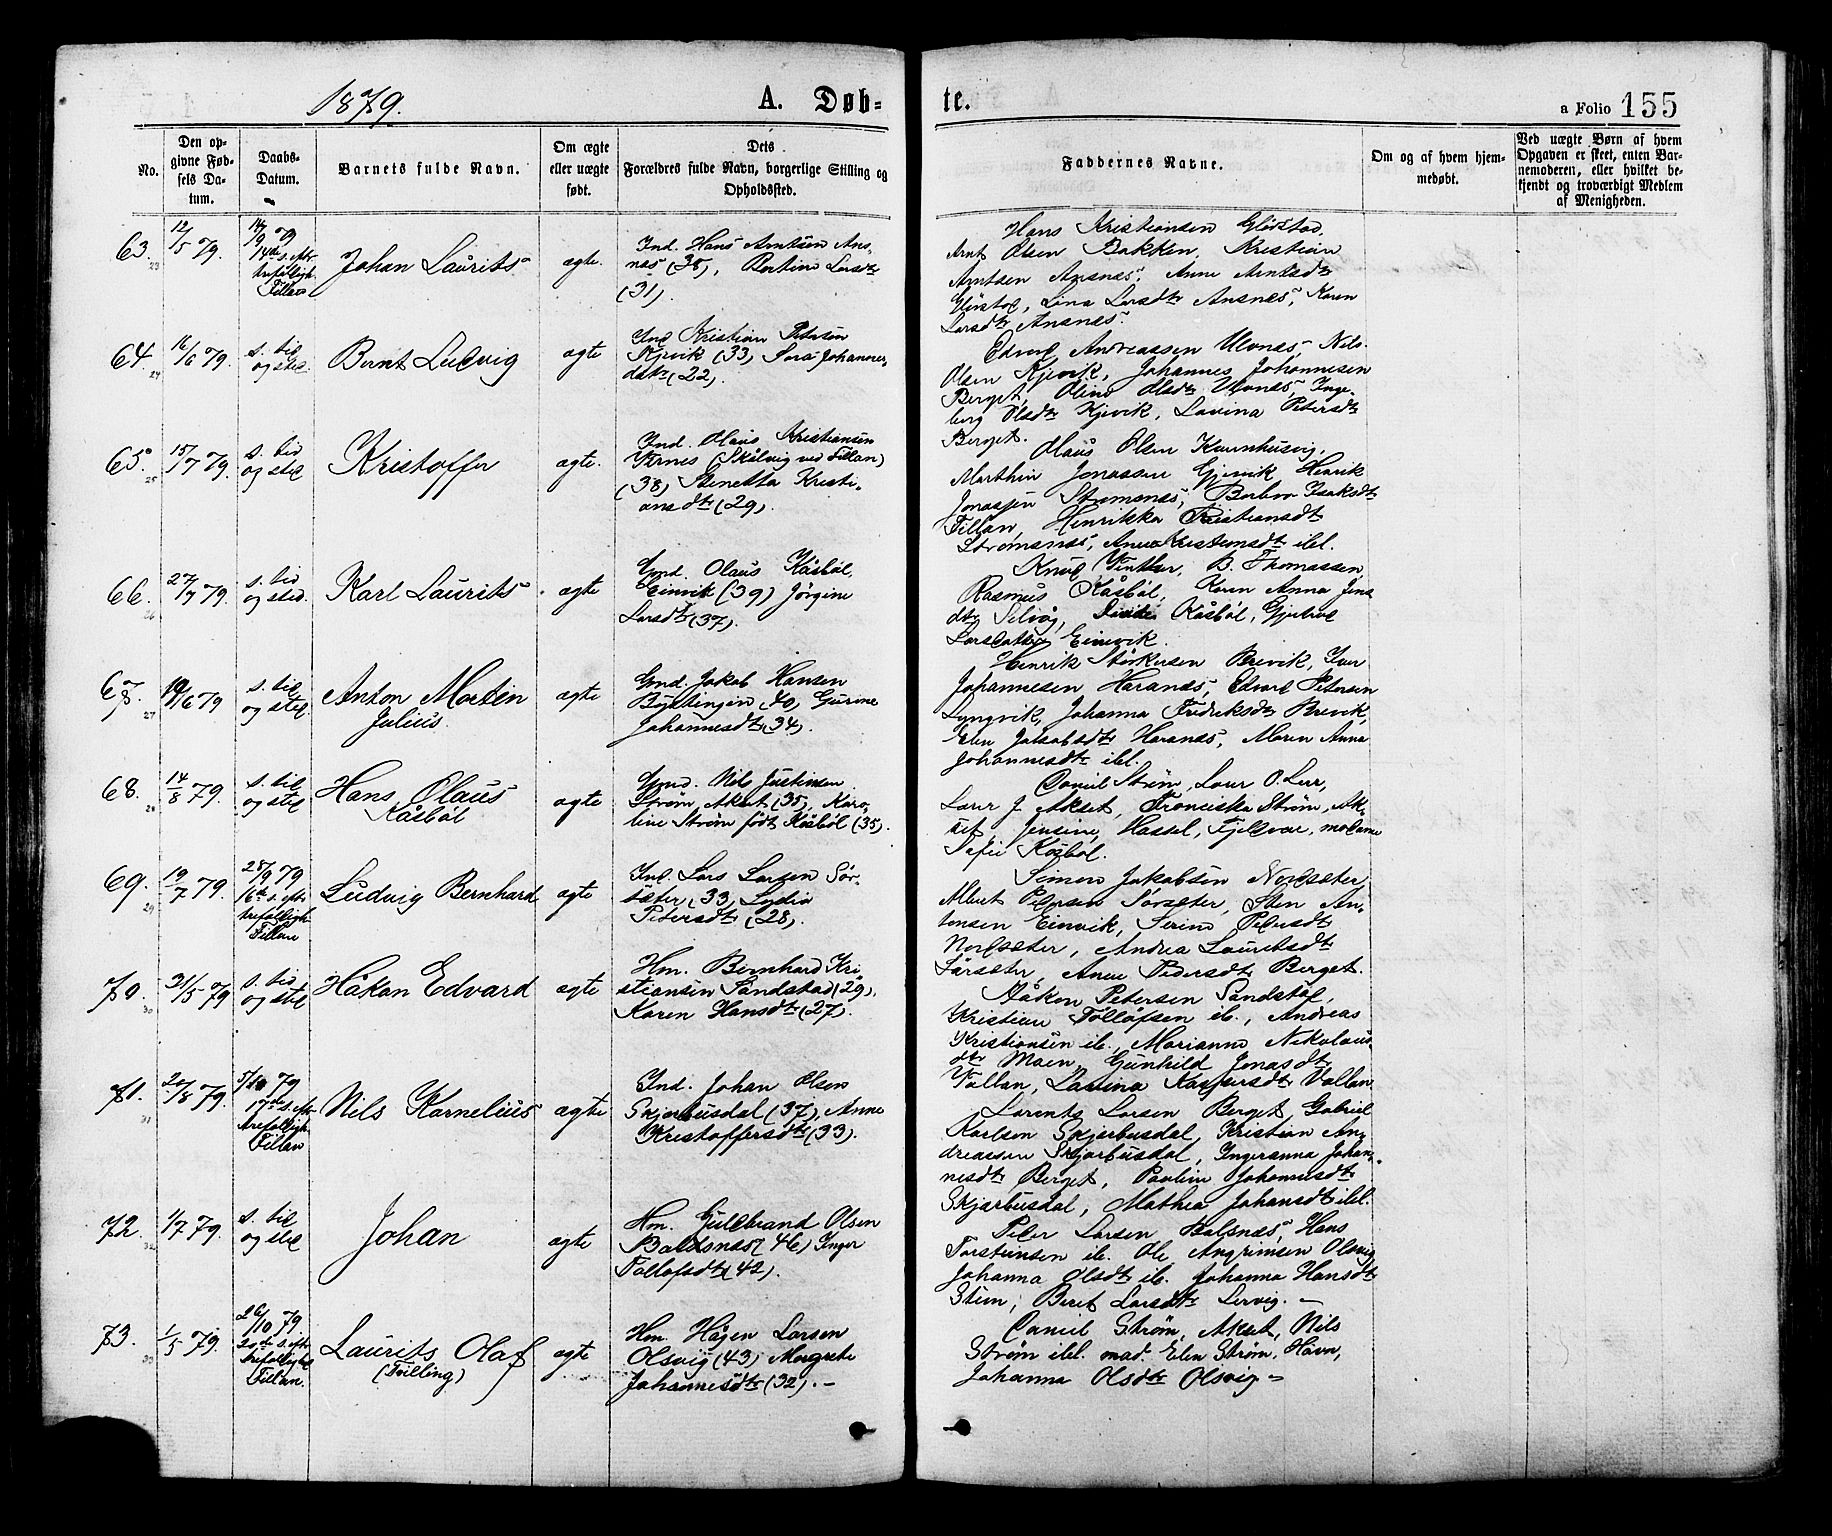 1879.
A. Døb-
te.
a Folio 155
No.
Den op-
givne Fød-
sels Da-
tum.
Daabs-
Datum.
Barnets fulde Navn.
Om ægte
eller uægte
født.
Dets
Forældres fulde Navn, borgerlige Stilling og
Opholdssted.
Faddernes Navne.
Om og af hvem hjem-
medøbt.
Ved uægte Børn af hvem
Opgaven er skeet, enten Bar-
nemoderen, eller hvilket be-
kjendt og troværdigt Medlem
af Menigheden.
63.
23
12/5 79.
14/9 79
14de s. eftr
trefoldigh.
Fillan
Johan Laurits
ægte.
Ind. Hans Arntsen Ans-
næs (38), Bertine Larsdtr
(31).
Hans Kristiansen Glørstad,
Arnt Olsen Bakken, Kristian
Arntsen Ansnes, Anne Arntsdtr
Glørstad, Lina Larsdtr Ansnes, Karen
Larsdtr Ansnes.
64.
24
16/6 79.
s. tid
og sted.
Bernt Ludvig
ægte
Ind Kristian Petersen
Kjervik (33), Sara Johannes-
datr (22).
Edvard Andreassen Ulvnæs, Nils
Olsen Kjevik, Johannes Johannesen
Berget, Oline Olsdtr Ulvnæs, Inge-
borg Olsdtr Kjevik, Lovina Petersdtr
Berget.
65.
25
15/7 79.
s. tid
og sted
Kristoffer
ægte.
Ind. Olaus Kristiansen
Værnes (Skålvig ved Fillan)
(38) Benetta Kristi-
ansdtr (29).
Olaus Olsen Kvernhusvig,
Marthin Jonassen Gjevik Henrik
Jonassen Strømsnæs, Barbro Isaksdtr
Fillan, Henrikka Kristiansdt
Strømsnæs, Anne Kristiansdt ibl.
66.
26
27/7 79.
s. tid
og sted.
Karl Laurits
ægte
Gmd. Olaus Kåsbøl,
Einvik (39) Jørgine
Larsdtr (37).
Knud Winther, B. Thomassen,
Rasmus Kåsbøl, Karen Anna Jens
dtr Selvåg, Kåsbøl, Gjertrud
Larsdatter Einevik.
67.
27
19/6 79
s. tid
og sted.
Anton Martin
Julius.
ægte
Gmd. Jakob Hansen
Bystingen (40), Gurine
Johannesdtr (34).
Henrik Størkersen Brevik, Iver
Johannesen Haranæs, Edvard Petersen
Lyngvik, Johanna Fredriksdtr Brevik,
Elen Jakobsdtr Haranæs, Maren Anna
Johannesdtr ibl.
68.
28
14/8 79.
s. tid
og sted
Hans Olaus
Kåsbøl
ægte
Gmd. Nils Justinsen
Strøm, Akset (35), Karo-
line Strøm født Kåsbøl (35).
Daniel Strøm, Laur O. Lerr,
Laur J. Akset, Franciska Strøm, Ak-
set, Jensine, Hassel, Fjelvær, madame
Sofie Kåsbøl.
69.
29
19/7 79.
28/9 79
16de s. eftr
trefoldigh.
Fillan
Ludvig Bernhard
ægte
Ind. Lars Larsen Sør-
sæter (33) Lydia
Petersdtr (28).
Simon Jakobsen Nordsæter
Albert Petersen Sørsæter, Sten An-
tonsen Einvik, Serine Petersdt
Nordsæter, Andrea Lauritsdt
Sørsæter, Anne Pedersdtr Berget.
70.
30
21/5 79
s. tid
og sted
Håkon Edvard
ægte
Hm. Bernhard Kri-
stiansen Sandstad (29).
Karen Hansdtr (27).
Håkon Petersen Sandstad,
Kristian Tollefsen ib., Andreas
Kristiansen ib., Marianne Nikolaus
dtr Moen, Gunhild Jonasdt
Vollan, Lavina Kaspersdtr Vallan
71.
31
20/8 79.
5/10 79
17de s. eftr
trefoldigh
Fillan
Nils Kornelius
ægte
Ind. Johan Olsen
Skjærbusdal (37), Anne
Kristoffersdtr (33).
Lorents Larsen Berget, Gabriel
Karlsen Skjarbusdal, Kristian An-
dreassen Skjarbusdal, Ingeranna Johan-
nesdt Berget, Pauline Johannesdt
Skjarbusdal, Mathea Johansdt ibl.
72.
32
1/7 79.
s. tid
og sted
Johan
ægte
Hm. Gulbrand Olsen
Baldsnæs (46) Inger
Tollefsdtr (42).
Peter Larsen Balsnæs, Hans
Torstensen ib. Ole Angrimsen Olsvig
Johanna Olsdt ib. Johanna Hansdt
Stien, Beret Larsdtr Lervig. —
73.
1/5 79.
26/10 79
20de s. eftr
trefoldighed
Fillan.
Laurits Olaf
(Tvilling)
ægte
Hm. Hågen Larsen
Olsvig (43) Margrete
Johannesdtr (32). —
Daniel Strøm, Akset, Nils
Strøm ibl. mad. Elen Strøm, Havn,
Johanna Olsdtr Olsvig —